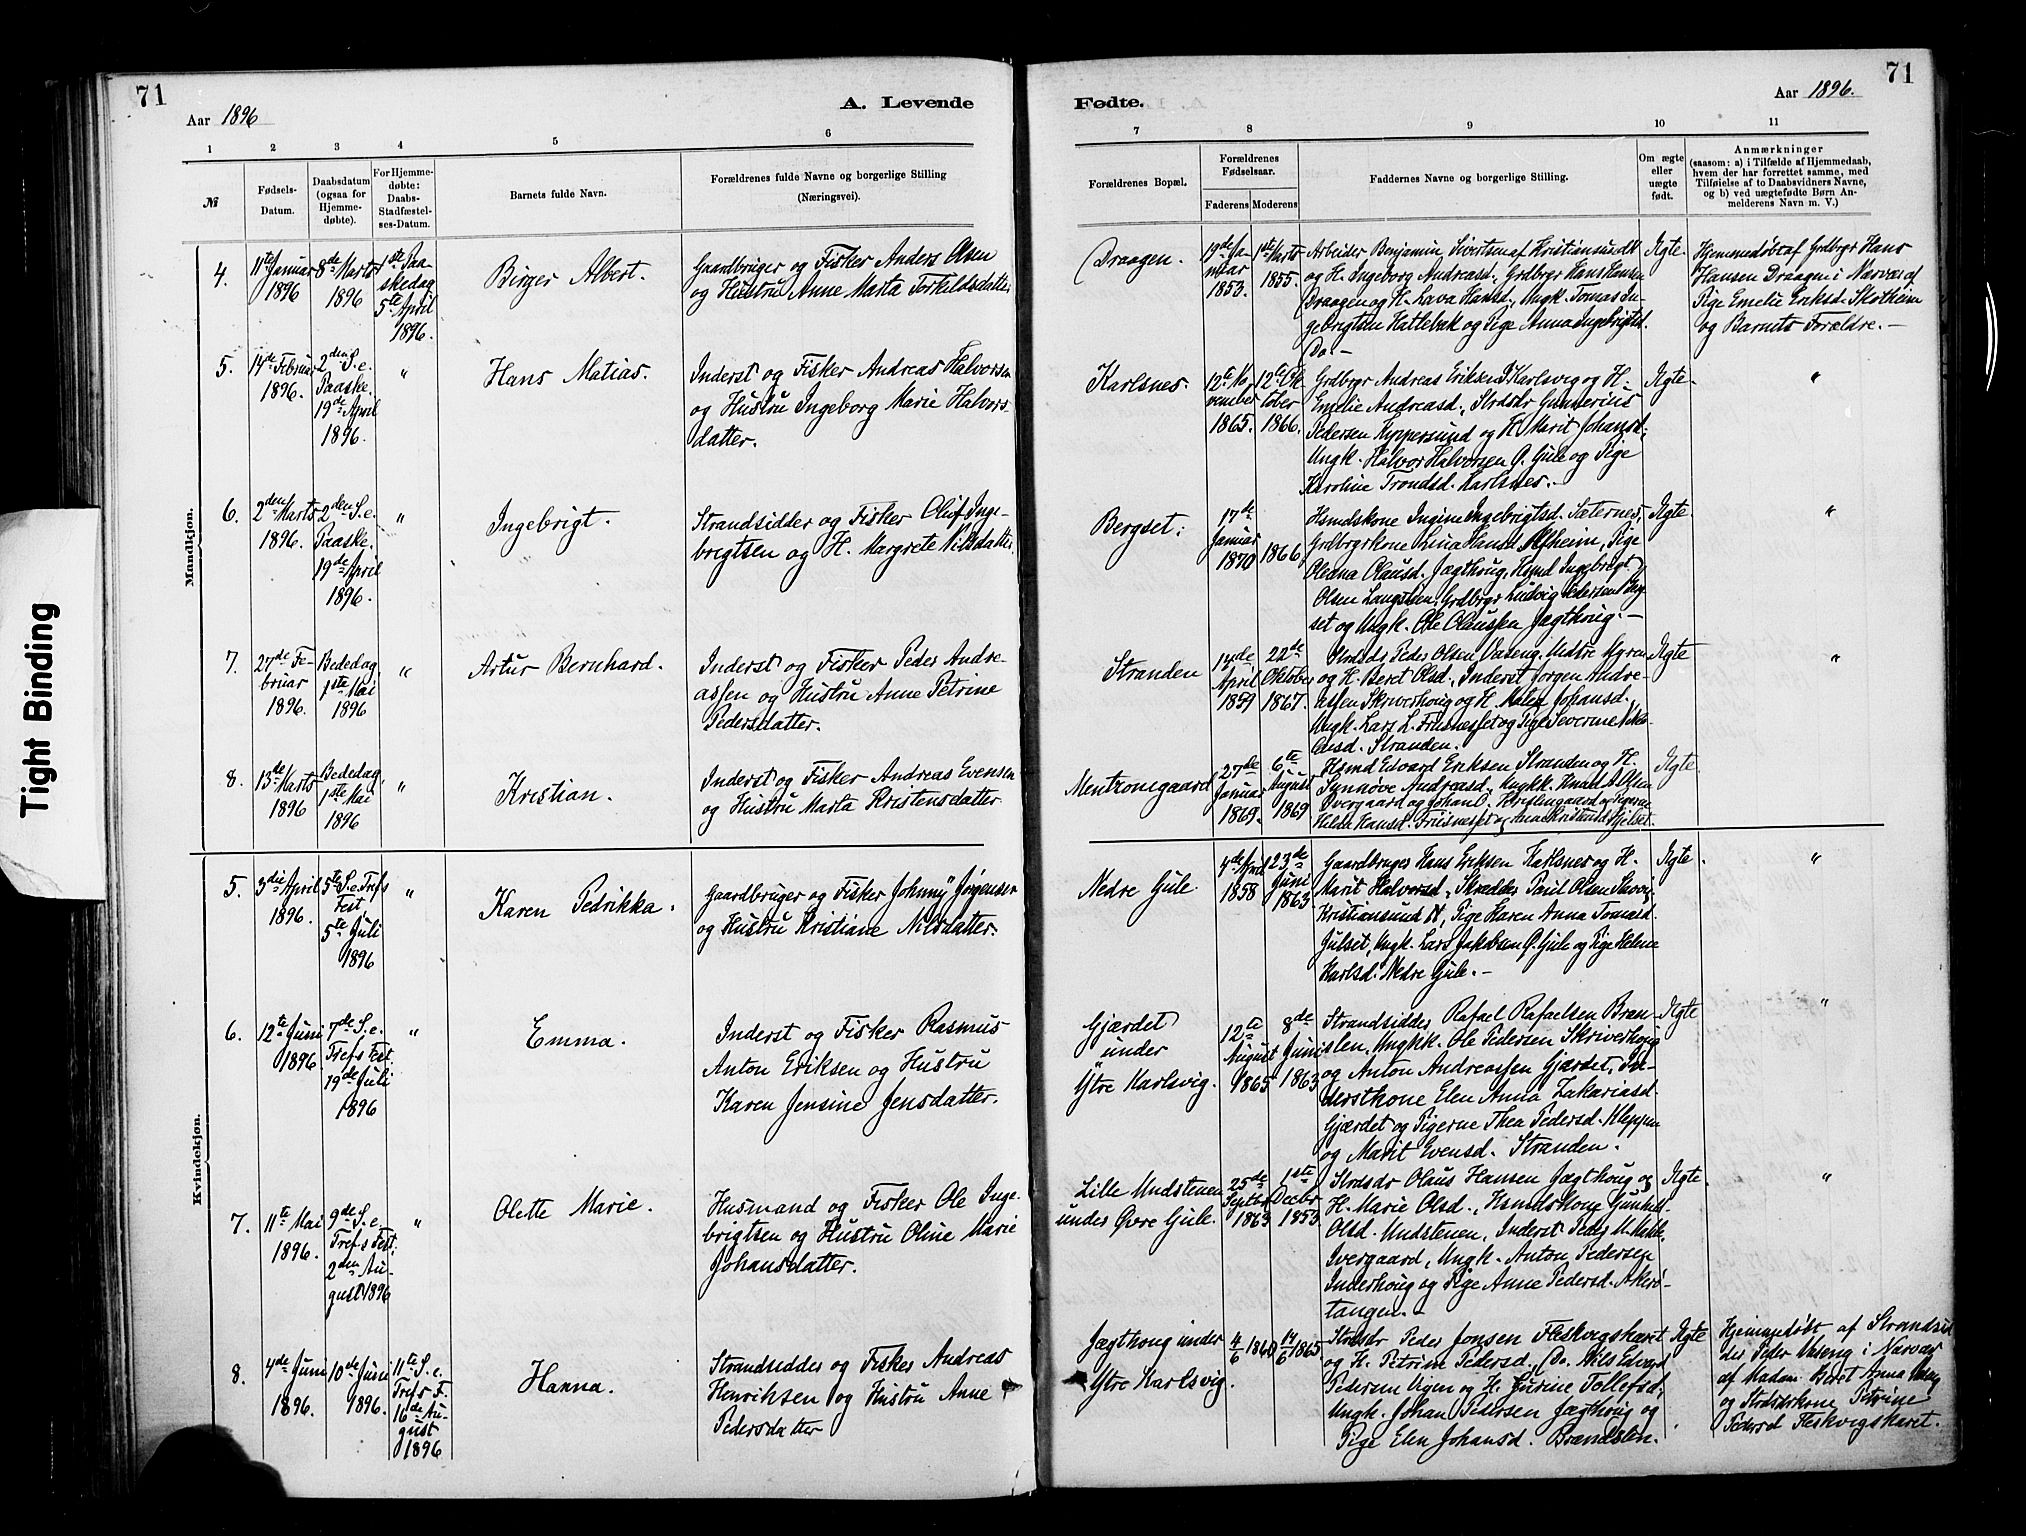 71
Aar 1896
A. Levende
1 2 3 4 5 6
№
Fødsels-
Datum.
Daabsdatum
(ogsaa for
Hjemme-
døbte).
For Hjemme-
døbte:
Daabs-
Stadfæstel-
ses-Datum.
Barnets fulde Navn.
Forældrenes fulde Navne og borgerlige Stilling
(Næringsvei).
Mandkjøn.
4.
11te Januar
1896
8de Marts
1896
1ste Paa-
skedag
5te April
1896.
Birger Albert.
Gaardbruger og Fisker Anders Olsen
og Hustru Anne Marta Torkildsdatter
5.
14de Februar
1896.
2den S. e.
Paaske.
19de April
1896.
"
Hans Matias.
Inderst og Fisker Andreas Halvorsen
og Hustru Ingeborg Marie Halvors-
datter.
6.
2den Marts
1896.
2den S. e.
Paaske.
19de April
1896.
"
Ingebrigt.
Strandsidder og Fisker Oluf Inge-
brigtsen og H. Margrete Nilsdatter.
7.
27de Fe-
bruar
1896.
Bededag
1ste Mai
1896
"
Artur Bernhard.
Inderst og Fisker Peder Andre-
assen og Hustru Anne Petrine
Pedersdatter.
8.
13de Marts
1896
Bededag,
1ste Mai
1896
"
Kristian.
Inderst og Fisker Andreas Evensen
og Hustru Marta Kristensdatter
Kvindekjøn.
5.
3die April
1896.
5te S. e. Trefs
Fest
5te Juli
1896
"
Karen Pedrikka.
Gaardbruger og Fisker Johnny Jørgensen
og Hustru Kristiane Nilsdatter.
6.
12te Juni
1896
7de S. e.
Trefs Fest.
19de Juli
1896
"
Emma.
Inderst og Fisker Rasmus
Anton Eriksen og Hustru
Karen Jensine Jensdatter.
7.
11te Mai
1896.
9de S. e.
Trefs Fest.
2den Au-
gust 1896
"
Olette Marie.
Husmand og Fisker Ole Inge-
brigtsen og Hustru Oline Marie
Johansdatter.
8.
4de Juni
1896.
10de Juni
1896.
11te S. e.
Trefs F.
16de Au-
gust
1896
Hanna.
Strandsidder og Fisker Andreas
Henriksen og Hustru Anne
Pedersdatter
Fødte.
Aar 1896.
71
7 8 9 10 11
Forældrenes Bopæl.
Forældrenes
Fødselsaar.
Faderens Moderens
Faddernes Navne og borgerlige Stilling.
Om ægte
eller
uægte
født.
Anmærkninger
(saasom: a) i Tilfælde af Hjemmedaab,
hvem der har forrettet samme, med
Tilføielse af to Daabsvidners Navne,
og b) ved uægtefødte Børn An-
melderens Navn m. V.)
Draagen.
19de Ja-
nuar
1853.
1ste Marts
1855.
Arbeider Benjamin Sivertsen af Kristianssund
og H. Ingeborg Andreasd., Grdbrgr Hans Hansen
Draagen og H. Lava Hansd., Ungk. Tomas In-
gebrigtsen Hattebak og Pige Anna Ingebrigtsd.
Do.-
Ægte.
Hjemmedøbt af Grdbrgr Hans
Hansen Draagen i Nærvær af
Pige Emelie Eriksd. Skotheim
og Barnets Forældre.-
Karlsnes.
12te No-
vember
1865.
12te Ok-
tober
1866.
Grdbrgr Andreas Eriksen Y. Karlsvig og H.
Emelie Andreasd., Strdsdr Gunnerius
Pedersen Kyppersund og H. Marit Johansd.,
Ungk. Halvor Halvorsen Ø. Gule og Pige
Karoline Trondsd. Karlsnes.-
Ægte
"
Bergset.
17de
Januar
1870
1866
Hsmdskone Ingine Ingebrigtsd. Sæternes,
Grdbrgrkone Lina Hansd. Alfheim, Pige
Oleana Olausd. Jægthoug, Hsmd Ingebrigt
Olsen Langsteen, Grdbrgr Ludvig Pedersen Berg-
set og Ungk. Ole Olaussen Jægthoug.-
Ægte.
"
Stranden
14de
April
1859
22de
Oktober
1867.
Strdsdr Peder Olsen Vaseng, Nedre Myren
og H. Beret Olsd., Inderst Jørgen Andre-
assen Skriverhoug og H. Malen Johansd.,
Ungk. Lars L. Frisnesset og Pige Severine
Stranden.
Ægte
"
Mentzonigaard
27de
Januar
1869.
6te
August
1869
Hsmd Edvard Eriksen Stranden og H.
Synnøve Andreasd., Ungkk. Knud A. Olsen
Ivergaard og Johan O. og Pigerne
Hilda Hansd. Frisnesset og
Ægte.
Nedre Gule
4de April
1858
23de
Juni
1863.
Gaardbruger Hans Eriksen Karlsnes og H.
Marit Halvorsd., Skrædder Paul Olsen
Kristianssund N, Pige Karen Anna Tomasd.
Julset, Ungk. Lars Jakobsen Ø. Gule og Pige Helene
Karlsd. Nedre Gule.-
Ægte.
"
Gjærdet
under
Ytre Karlsvig.
12te
August
1865
8de
Juni
1863
Strandsidder Rafael Rafaelsen Bræn-
slen, Ungkk. Ole Pedersen Skriverhoug
og Anton Andreassen Gjærdet, In-
derstkone Elen Anna Zakariasd.
Gjærdet og Pigerne Thea Pedersd. Kleppen
og Marit Evensd. Stranden.
Ægte
"
Lille Undstenen
under Øvre Gule.
25de
Septbr
1863
1ste
Decbr
1853
Strdsdr Olaus Hansen Jægthoug og
H. Marie Olsd., Hsmdskone Gunhild
Olsd. Undstenen, Inderst Peder
Ivergaard, Ungk. Anton Pedersen
Inderhoug og Pige Anne Pedersd. Akerø-
tangen.-
Ægte.
"
Jægthoug under
Ytre Karlsvig.
4/6 1860
14/6 1865
Strdsdr Peder Jonsen Fleskvigskaret
og H. Petrine Pedersd., Do. Nils Edvard
Pedersen Ugen og H. Gurine Tollefsd.,
Ungk. Johan Pedersen Jægthoug og
Pige Elen Johansd. Brændslen.
Ægte
Hjemmedøbt af Strandsid-
der Peder Vaseng i Nærvær
af Madam Beret Anna
og Strdsdrkone Petrine
Pedersd Fleskvigskaret.
Tight Binding